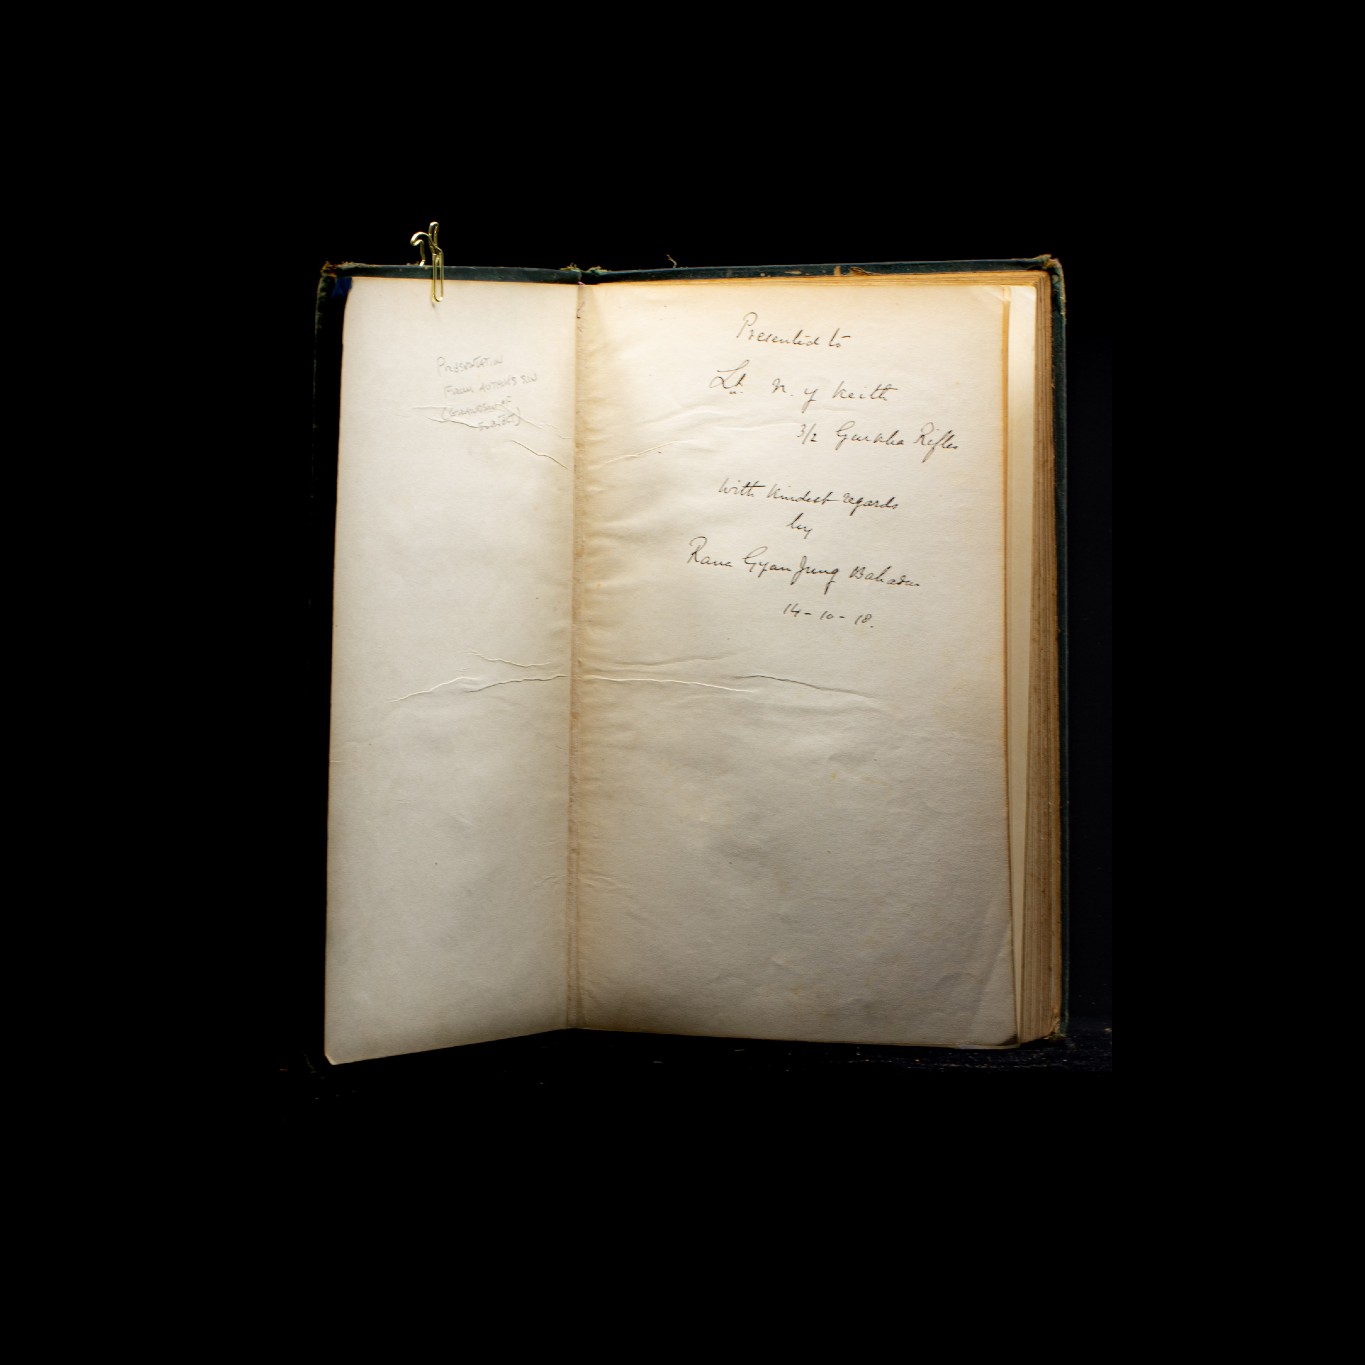 PRESENTATION
FROM AUTHOR'S SON
(GRANDSON OF
SUBJECT)
Presented to
Lt. N. Y Keith
3/2 Gurkha Rifles
With kindest regards
by
Rana Gyan Jung Bahadur
14-10-18.